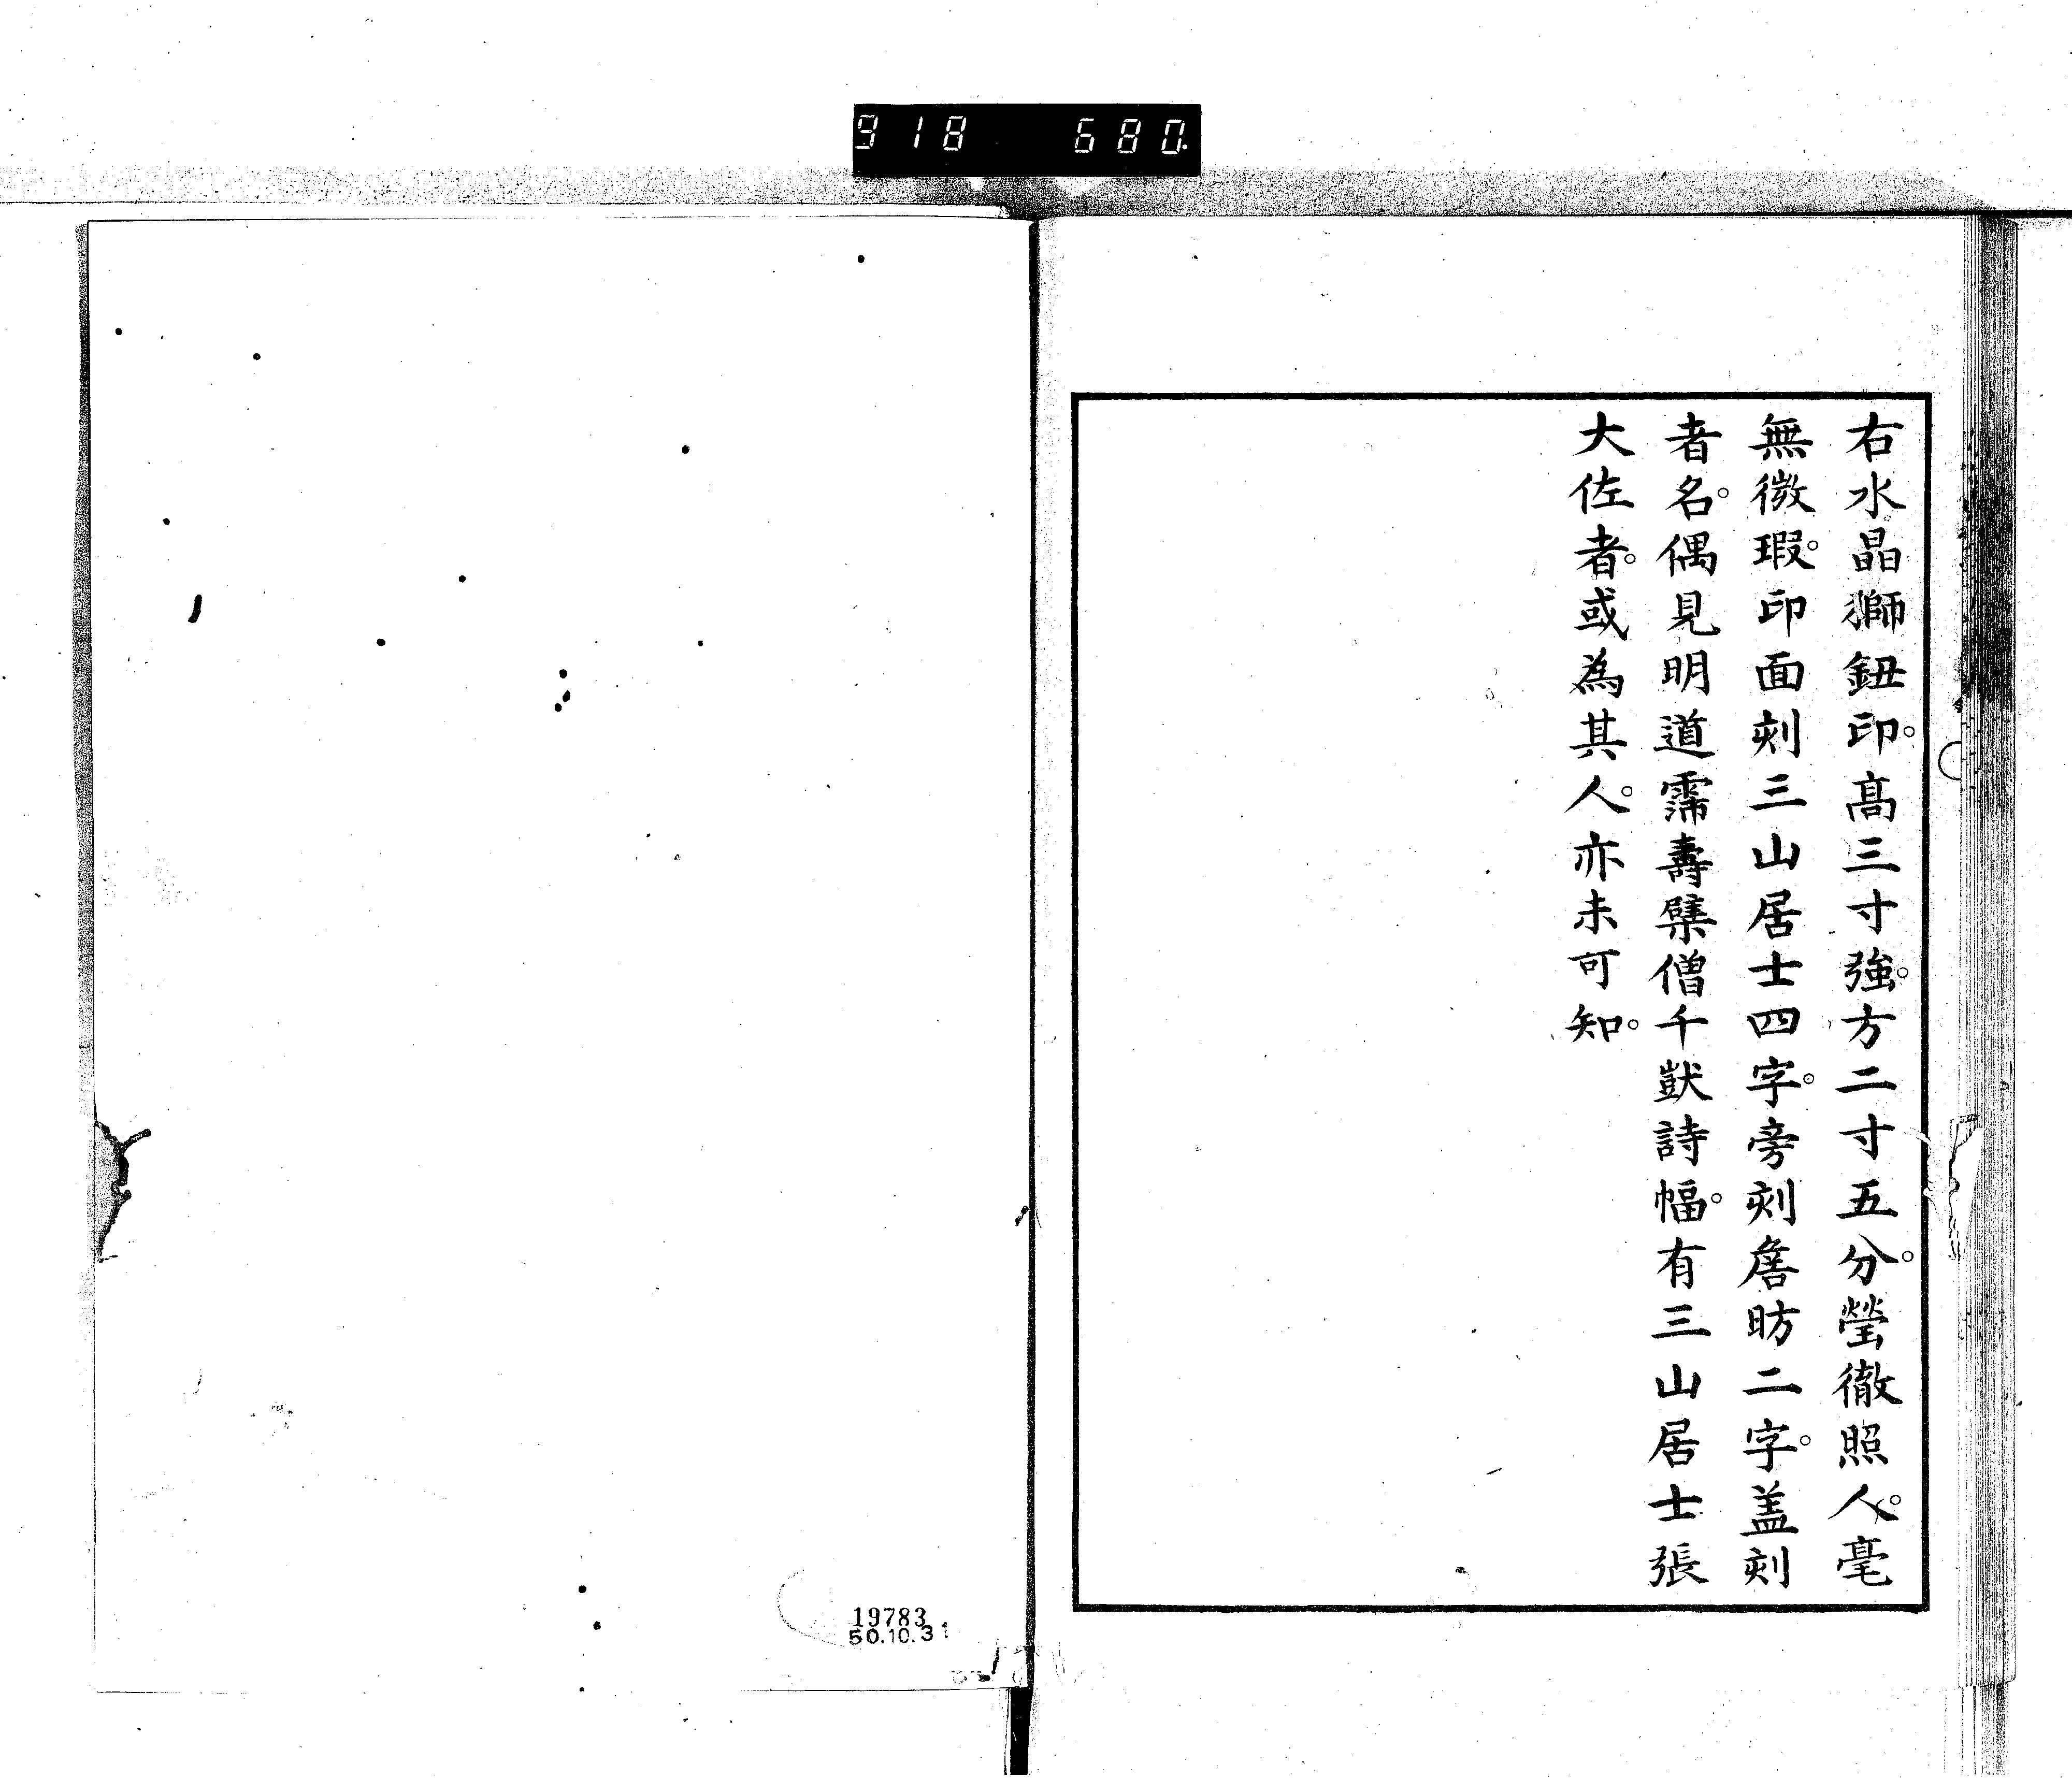 918 680.
右水晶獅鈕印。髙三寸強。方二寸五分。瑩徹照人。毫
無微瑕。印面刻三山居士四字。旁刻詹昉二字。盖刻
者名。偶見明道霈壽檗僧千獃詩幅。有三山居士張
大佐者。或為其人。亦未可知。
19783
50.10.31